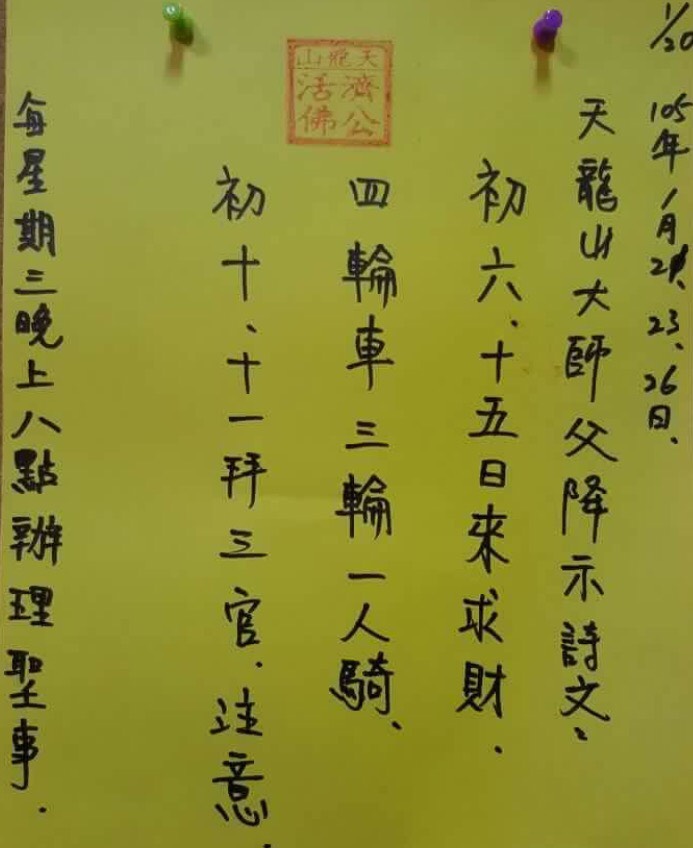 1/20
105年1月21、23、26日、
天龍山大師父降示詩文:
初六、十五日來求財.
四輪車三輪一人騎、
初十、十一拜三官.注意.
每星期三晚上八點辦理聖事.
天龍山
濟公
活佛